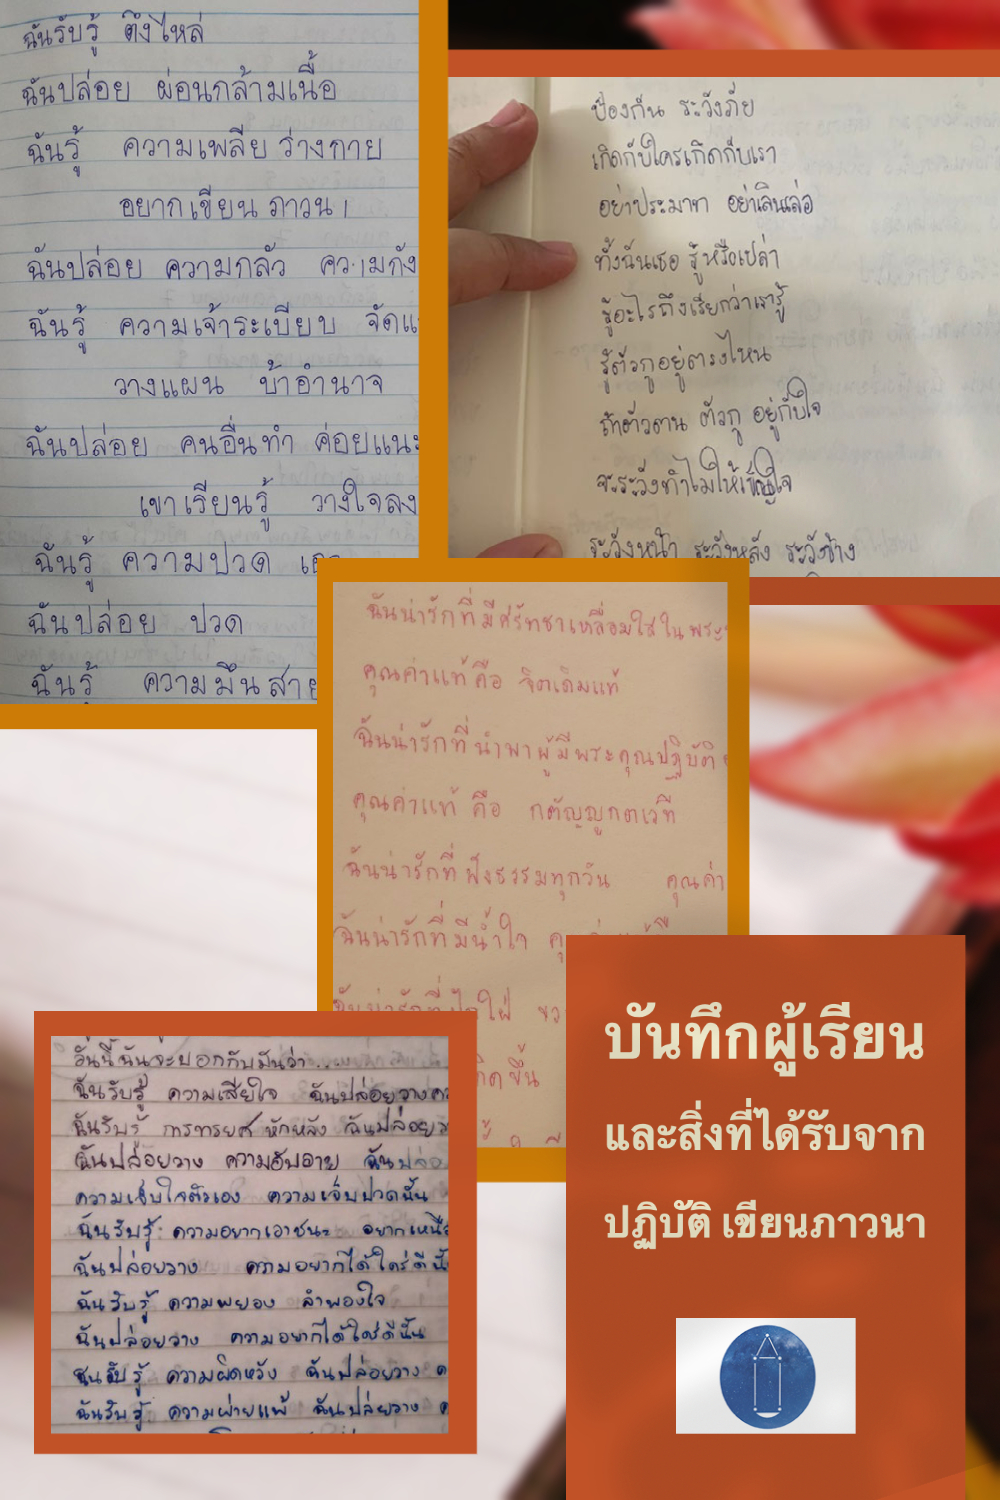 ฉันรับรู้ ตึงไหล่
ฉันปล่อย ผ่อนกล้ามเนื้อ
ฉันรู้ ความเพลีย ร่างกาย
อยากเขียน ภาวนา
ฉันปล่อย ความกลัว ความกัง
ฉันรู้ ความเจ้าระเบียบ จัดแ
วางแผน บ้าอำนาจ
ฉันปล่อย คนอื่นทำ ค่อยแนะ
เขาเรียนรู้ วางใจลง
ฉันรู้ ความปวด
ฉันปล่อย ปวด
ฉันรู้ ความมึน สาย
ป้องกัน ระวังภัย
เกิดกับใครเกิดกับเรา
อย่าประมาท อย่าเลินเล่อ
ทั้งฉันเธอ รู้หรือเปล่า
รู้อะไรถึงเรียกว่าเรารู้
รู้ตัวกูอยู่ตรงไหน
ถ้าตัวตน ตัวกู อยู่กับใจ
จะระวังทำไมให้
ระวังหน้า ระวังหลัง ระวังข้าง
ฉันน่ารักที่มีศรัทธาเหลื่อมใสในพระ
คุณค่าแท้คือ จิตเดิมแท้
ฉันน่ารักที่นำพาผู้มีพระคุณปฏิบัติ
คุณค่าแท้ คือ กตัญญูกตเวที
ฉันน่ารักที่ ฟังธรรมทุกวัน คุณค่า
ฉันน่ารักที่มีน้ำใจ
กิดขึ้น
วันนี้ฉันจะบอกกับมันว่า...
ฉันรับรู้ ความเสียใจ ฉันปล่อยวางคว
ฉันรับรู้ การทรยศ หักหลัง ฉันปล่อยว
ฉันปล่อยวาง ความอับอาย ฉันปล่อ
ความเจ็บใจตัวเอง ความเจ็บปวดนั้น
ฉันรับรู้ ความอยากเอาชนะ อยากเหนือ
ฉันปล่อยวาง ความอยากได้ใคร่ดีนั้
ฉันรับรู้ ความผยอง ลำพองใจ
ฉันปล่อยวาง ความอยากได้ใคร่ดีนั้น
ฉันรับรู้ ความผิดหวัง ฉันปล่อยวาง ค
ฉันรับรู้ ความพ่ายแพ้ ฉันปล่อยวาง ค
บันทึกผู้เรียน
และสิ่งที่ได้รับจาก
ปฏิบัติ เขียนภาวนา